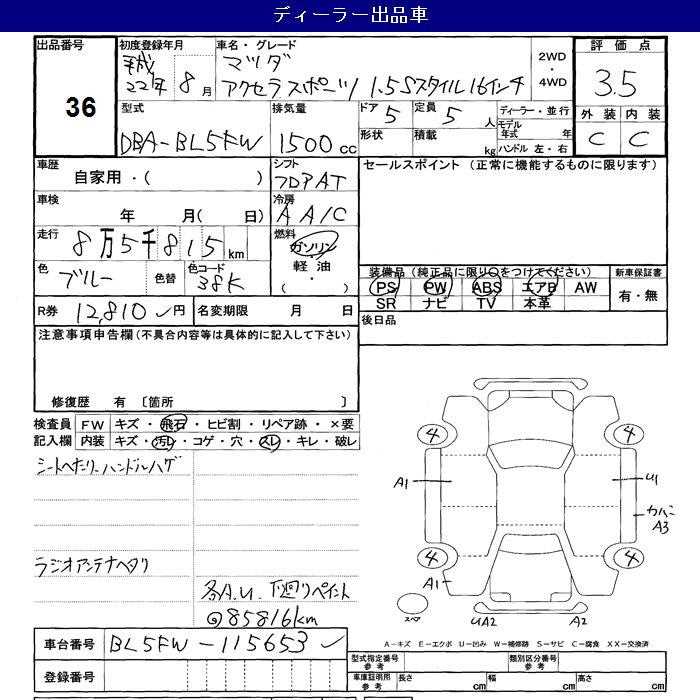 ディーラー出品車
出品番号
36
初度登録年月
平成
22年 8月
車名・グレード
マツダ
アクセラスポーツ 1.5Sスタイル16インチ
2WD
・
4WD
評価点
3.5
外装 内装
C C
型式
DBA-BL5FW
排気量
1500cc
ドア 5
定員 5人
ディーラー・並行
モデル
年式 年
形状
積載 kg
ハンドル 左・右
車歴
自家用・( )
シフト
フロアAT
セールスポイント (正常に機能するものに限ります)
車検
年 月( 日)
冷房
AA/C
走行
8万5千815km
燃料
ガソリン
・
軽油
( ・ )
色
ブルー
色替
色コード
38K
装備品 (純正品に限り○をつけてください)
PS PW ABS エアB AW
SR ナビ TV 本革
新車保証書
有・無
R券 12,810円
名変期限 月 日
後日品
注意事項申告欄(不具合内容等は具体的に記入して下さい)
修復歴 有 〔箇所 〕
検査員
記入欄
FW キズ・飛石・ヒビ割・リペア跡・×要
内装 キズ・汚レ・コゲ・穴・スレ・キレ・破レ
シートヘタリ・ハンドルハゲ
ラジオアンテナヘタリ
各A.U. 下廻リペイント
@85816km
4 4
A1 U1
カハニ
A3
4 4
A1
スペア
UA2 A2
A-キズ E-エクボ U-凹み W-補修跡 S-サビ C-腐食 XX-交換済
車台番号 BL5FW-115653
登録番号
型式指定番号
参考
類別区分番号
参考
車庫証明用
参考
長さ cm 幅 cm 高さ cm